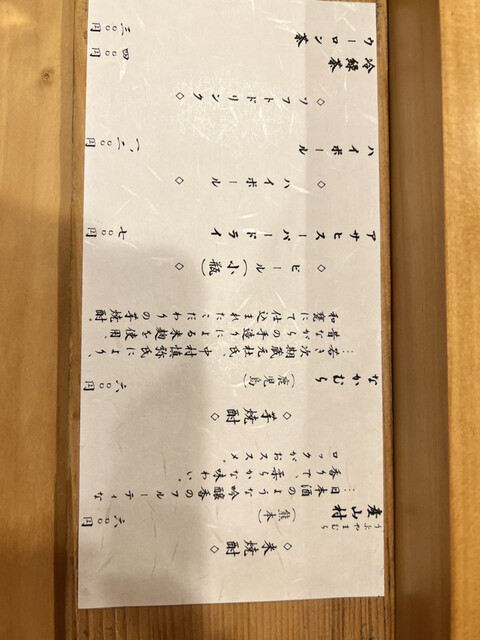 ◇ 米焼酎 ◇
うぶやまむら
産山村（熊本） 六〇〇円
…日本酒のような吟醸香のフルーティな
香りで、柔らかな味わい。
ロックがおススメ。
◇ 芋焼酎 ◇
なかむら（鹿児島） 六〇〇円
…若き次期蔵元杜氏、中村慎弥氏により、
昔ながらの手造りによる米麹を使用、
和甕にて仕込まれたこだわりの芋焼酎。
◇ ビール（小瓶） ◇
アサヒスーパードライ 七〇〇円
◇ ハイボール ◇
ハイボール 一、二〇〇円
◇ ソフトドリンク ◇
冷緑茶 四〇〇円
ウーロン茶 三〇〇円